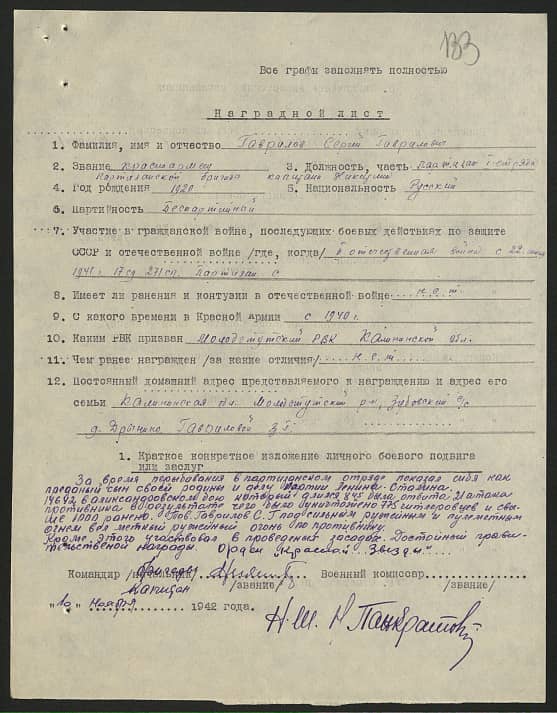 133
Все графы заполнять полностью
Наградной лист
1. Фамилия, имя и отчество Гаврилов Сергей Гаврилович
2. Звание Красноармеец 3. Должность, часть партизан отряда
Партизанской бригады капитана
4. Год рождения 1920 5. Национальность Русский
6. Партийность Беспартийный
7. Участие в гражданской войне, последующих боевых действиях по защите
СССР и отечественной войне /где, когда/ В отечественная война с 22
1941 г. 17 сд 271 сп. партизан с
8. Имеет ли ранения и контузии в отечественной войне нет
9. С какого времени в Красной армии с 1940 г.
10. Каким РВК призван Молодотутский РВК Калининской обл.
11. Чем ранее награжден /за какие отличия/ нет
12. Постоянный домашний адрес представляемого к награждению и адрес его
семьи Калининская обл. Молодотутский р-н, Зубовский с/с
д. Гавриловой
1. Краткое конкретное изложение личного боевого подвига
или заслуг
За время пребывания в партизанском отряде показал себя как
преданный сын своей родины и делу партии Ленина-Сталина.
бою который длился была отбита 21 атака
противника в результате чего было уничтожено 775 гитлеровцев и свы-
ше 1000 ранено. Тов. Гаврилов С.Г. под сильным ружейным и пулеметным
огнем вел меткий ружейный огонь по противнику.
Кроме этого участвовал в проведении засады. Достойный прави-
тельственной награды Орден "Красной Звезды".
Командир /начальник/ Военный комиссар
бригады
капитан /звание/ /звание/
"10" Ноября 1942 года.
Н.Ш. Панкратов